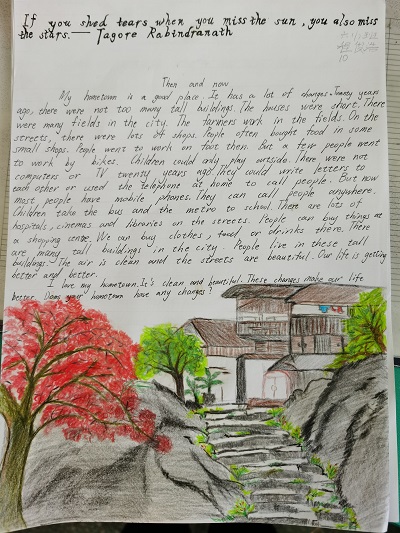 If you shed tears when you miss the sun, you also miss
the stars.— Tagore Rabindranath
10
Then and now
My hometown is a good place. It has a lot of changes. Twenty years
ago, there were not too many tall buildings. The houses were short. There
were many fields in the city. The farmers work in the fields. On the
streets, there were lots of shops. People often bought food in some
small shops. People went to work on foot then. But a few people went
to work by bikes. Children could only play outside. There were not
computers or TV twenty years ago. They could write letters to
each other or used the telephone at home to call people. But now
most people have mobile phones. They can call people anywhere.
Children take the bus and the metro to school. There are lots of
hospitals, cinemas and libraries on the streets. People can buy things at
a shopping centre. We can buy clothes, food or drinks there. There
are many tall buildings in the city. People live in these tall
buildings. The air is clean and the streets are beautiful. Our life is getting
better and better.
I love my hometown. It's clean and beautiful. These changes make our life
better. Does your hometown have any changes?